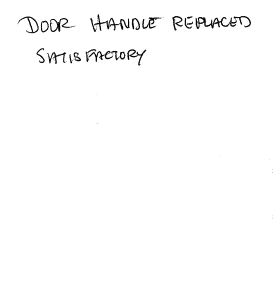 DOOR HANDLE REPLACED
SATISFACTORY